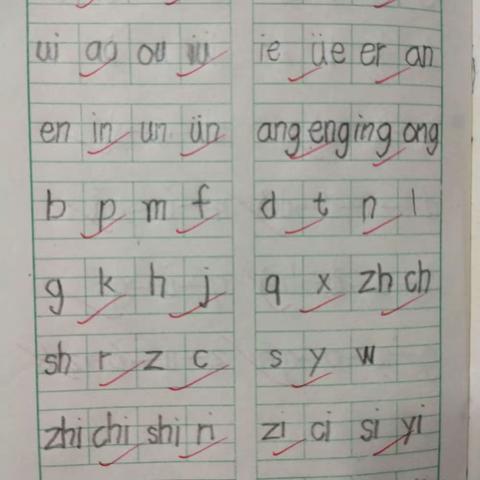 ui ao ou iu ie üe er an
en in un ün ang eng ing ong
b p m f d t n l
g k h j q x zh ch
sh r z c s y w
zhi chi shi ri zi ci si yi